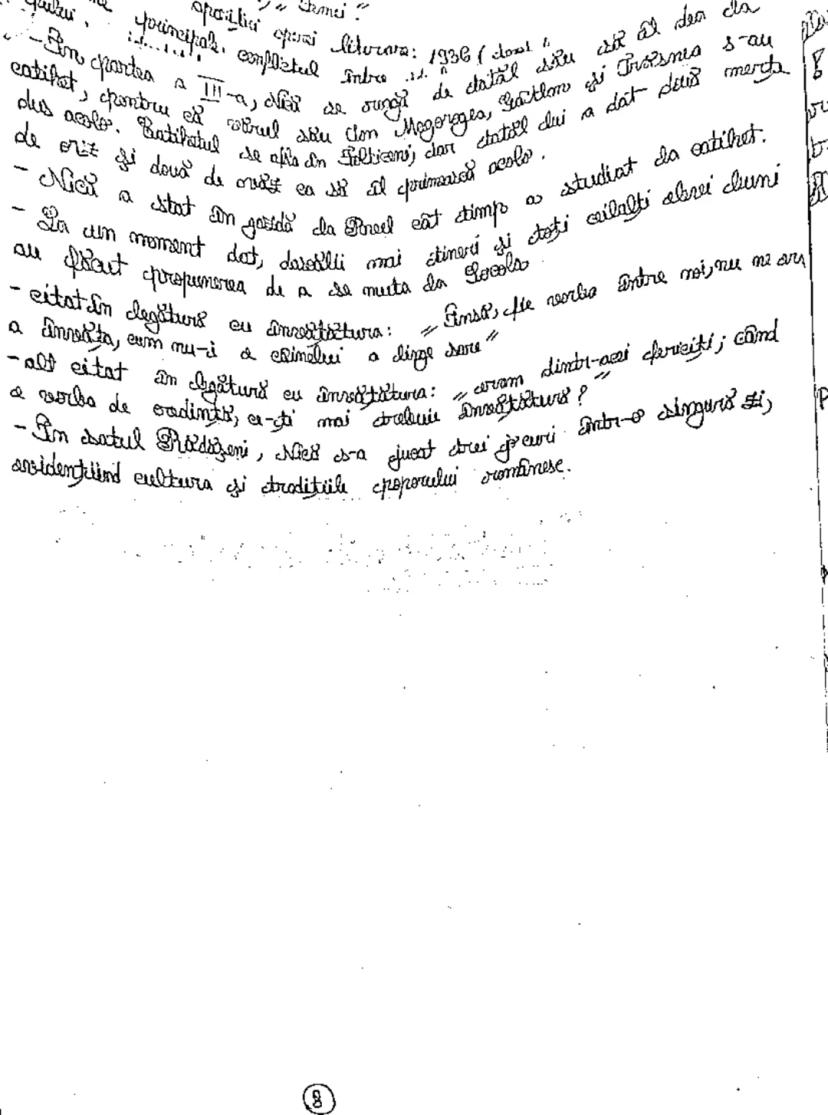 apariției operei literare: 1936 (
principal, conflictul între
- În partea a III-a, Nică se roagă de tatăl său să îl dea la
catihet, pentru că vărul său Ion Mogorogea, Gâtlan și Trăsnea s-au
dus acolo. Catihetul se afla în Fălticeni, dar tatăl lui a dat două merțe
de orz și două de ovăz ca să îl primească acolo.
- Nică a stat în gazdă la Pavel cât timp a studiat la catihet.
- La un moment dat, dascălii mai tineri și toți ceilalți elevi
au făcut propunerea de a se muta la Socola.
- citat în legătură cu învățătura: „Însă, fie vorba între noi, nu ne
a învăța, cum nu-i e câinelui a linge sare"
- alt citat în legătură cu învățătura: „eram dintr-acei fericiți; când
e vorba de credință, ce-ți mai trebuie învățătură?"
- În satul Rădășeni, Nică s-a jucat trei jocuri într-o singură zi,
evidențiind cultura și tradițiile poporului românesc.
8